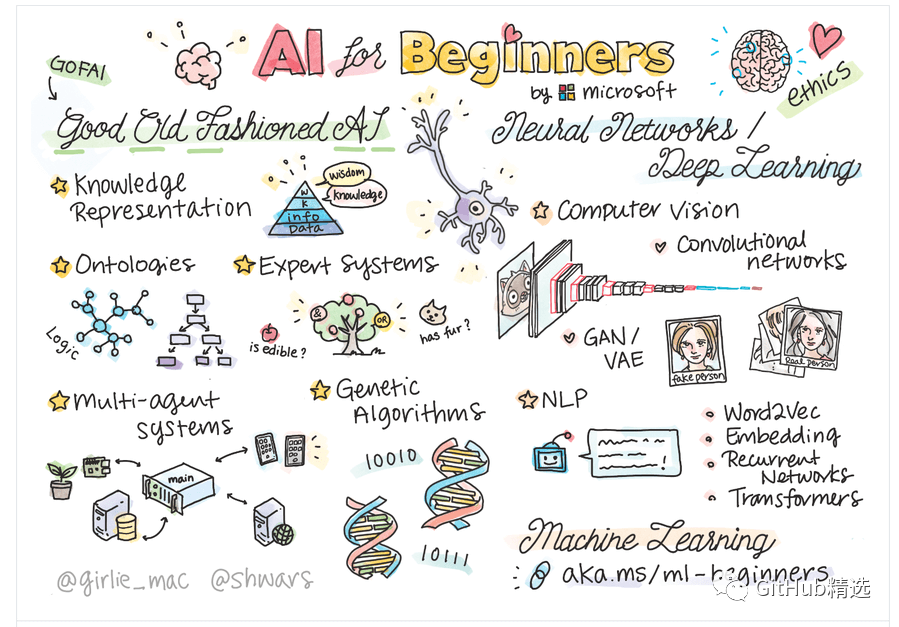 GOFAI
AI for Beginners
by microsoft
ethics
Good Old Fashioned AI
Knowledge
Representation
wisdom
knowledge
W
K
info
Data
Ontologies
Logic
Expert Systems
&
OR
is edible?
has fur?
Multi-agent
systems
main
Genetic
Algorithms
10010
10111
@girlie_mac @shwars
Neural Networks /
Deep Learning
Computer Vision
Convolutional
networks
GAN /
VAE
fake person
real person
NLP
!
Word2Vec
Embedding
Recurrent
Networks
Transformers
Machine Learning
aka.ms/ml-beginners
GitHub精选